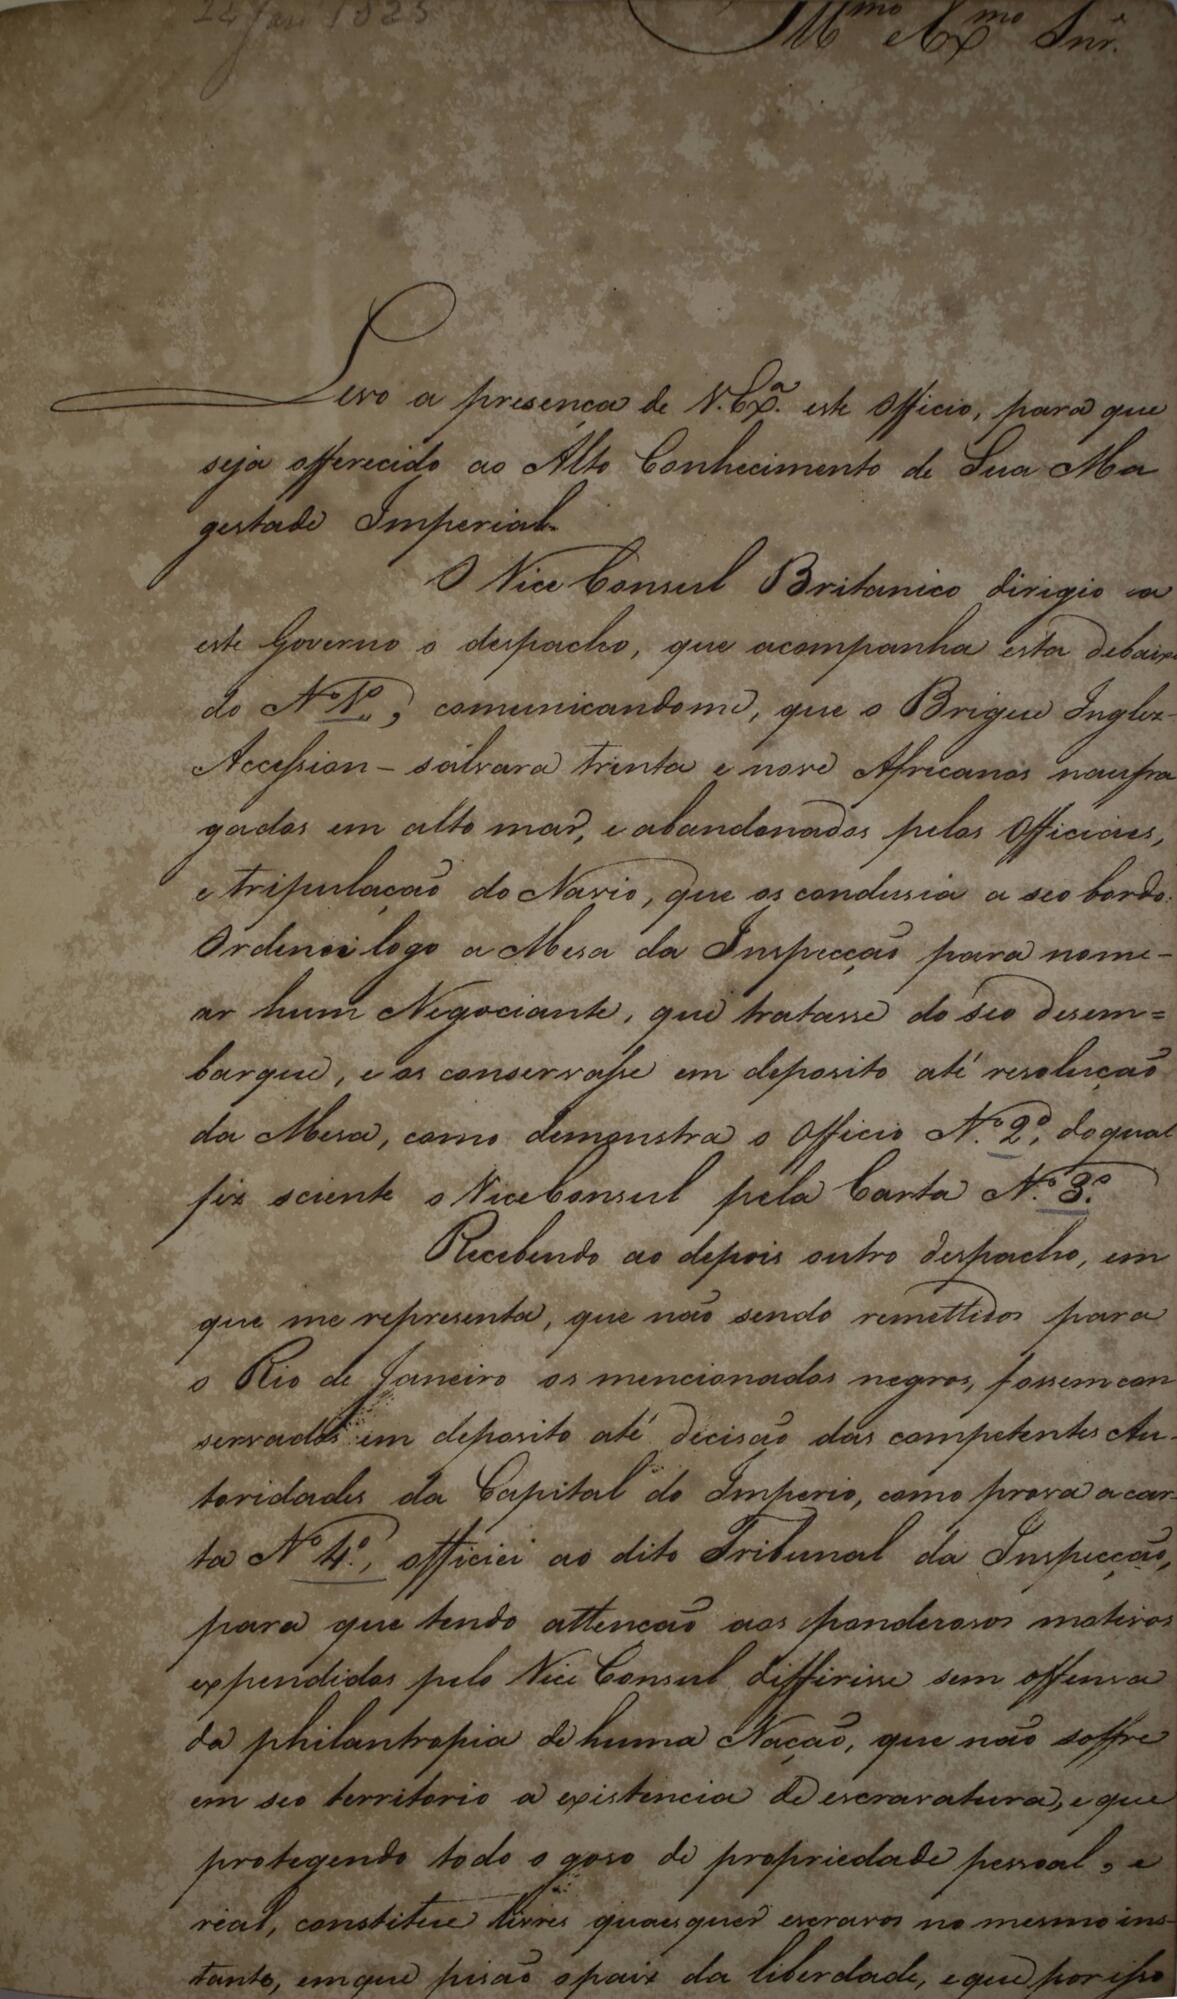 24 Jan 1825
Illmo e Exmo Snr.
Levo a presença de V. Exa. este Officio, para que
seja offerecido ao Alto Conhecimento de Sua Ma
gestade Imperial.
O Vice Consul Britanico dirigio a
este Governo o despacho, que acompanha esta debaixo
do No 1o, comunicandome, que o Brigue Inglez
Accession - sálvara trinta e nove Africanos naufra
gados em alto mar, e abandonados pelos Officiaes,
e tripulação do Navio, que os condusia a seo bordo.
Ordenei logo a Mesa da Inspecção para nome-
ar hum Negociante, que tratasse do seo desem=
barque, e os conservasse em deposito até resolução
da Mesa, como demonstra o Officio No. 2o, do qual
fiz sciente o Vice Consul pela Carta No. 3o.
Recebendo ao depois outro despacho, em
que me representa, que não sendo remettidos para
o Rio de Janeiro os mencionados negros, fossem con
servados em deposito até decisão das competentes Au-
toridades da Capital do Imperio, como prova a car-
ta No 4o, officiei ao dito Tribunal da Inspecção,
para que tendo attenção aos ponderosos motivos
expendidos pelo Vice Consul differisse sem offensa
da philantropia de huma Nação, que não soffre
em seo territorio a existencia de escravatura, e que
protegendo todo o goso de propriedade pessoal, e
real, constitue livres quaesquer escravos no mesmo ins-
tante, em que pisão o paiz da liberdade, e que por isso